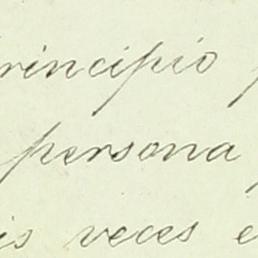 rincipio
persona
is veces e